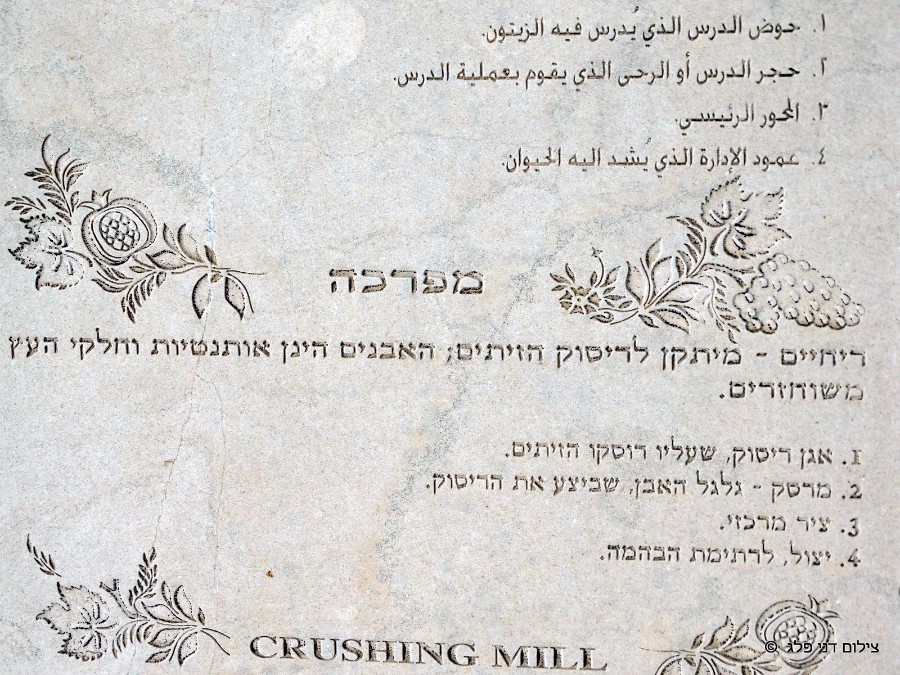 ١. حوض الدرس الذي يُدرس فيه الزيتون.
٢. حجر الدرس أو الرحى الذي يقوم بعملية الدرس.
٣. المحور الرئيسي.
٤. عمود الإدارة الذي يُشد اليه الحيوان.
מפרכה
ריחיים - מיתקן לריסוק הזיתים; האבנים הינן אותנטיות וחלקי העץ
משוחזרים.
1. אגן ריסוק, שעליו רוסקו הזיתים.
2. מרסק - גלגל האבן, שביצע את הריסוק.
3. ציר מרכזי.
4. יצול, לרתימת הבהמה.
CRUSHING MILL
© צילום דני פלג